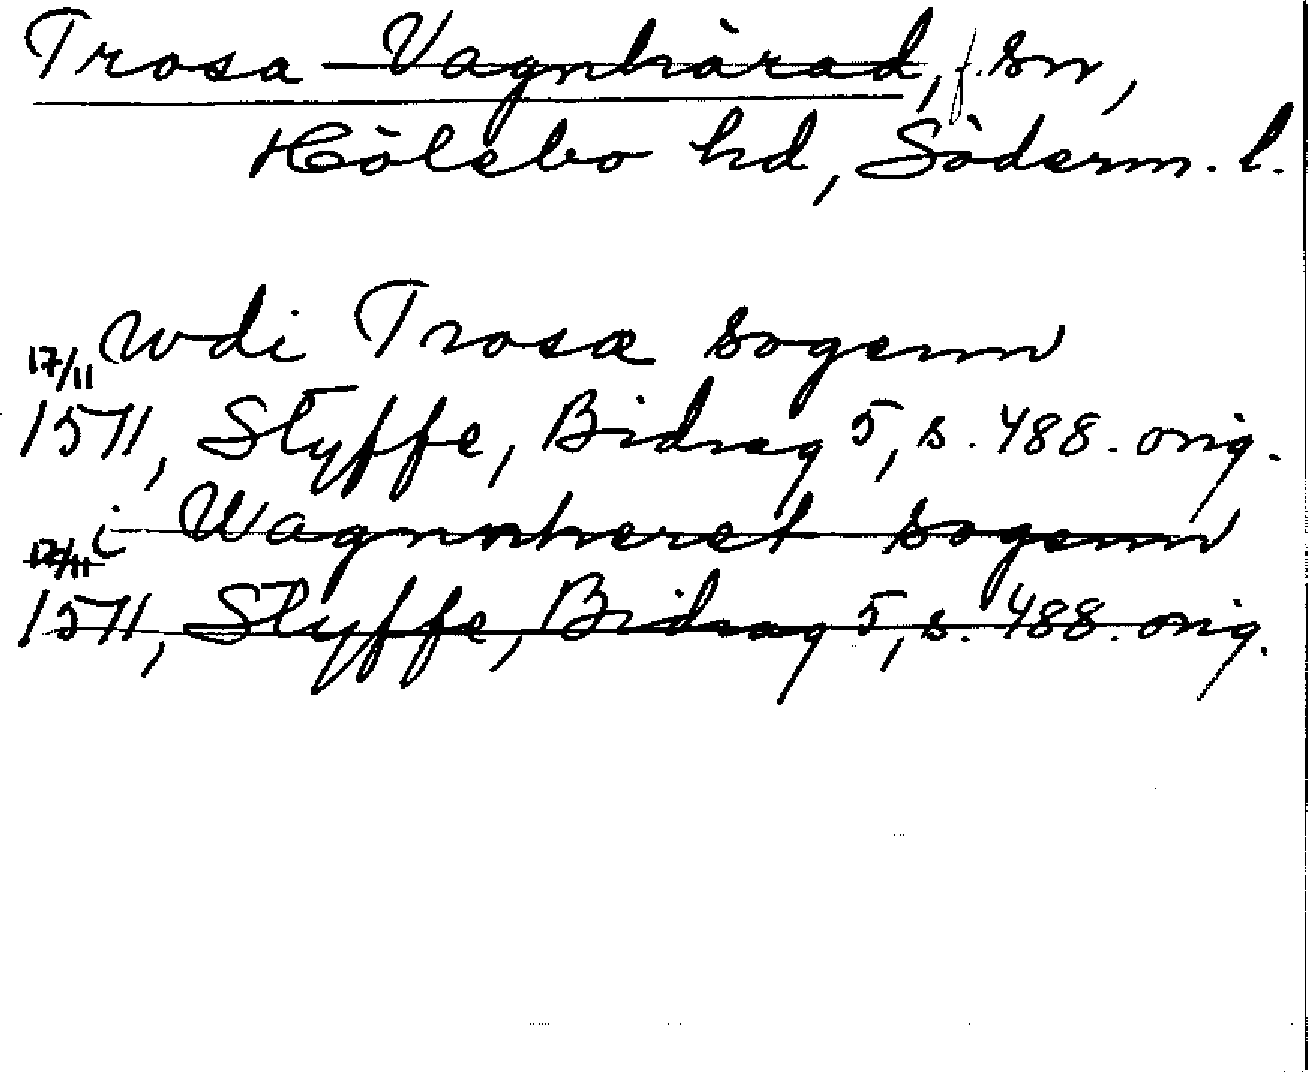 Trosa-Vagnhärad, f. sn,
Hölebo hd, Söderm. l.
wdi Trosæ sogenn
17/11 1511, Styffe, Bidrag 5, s. 488. orig.
i Wagnsheret sogenn
17/11 1511, Styffe, Bidrag 5, s. 488. orig.